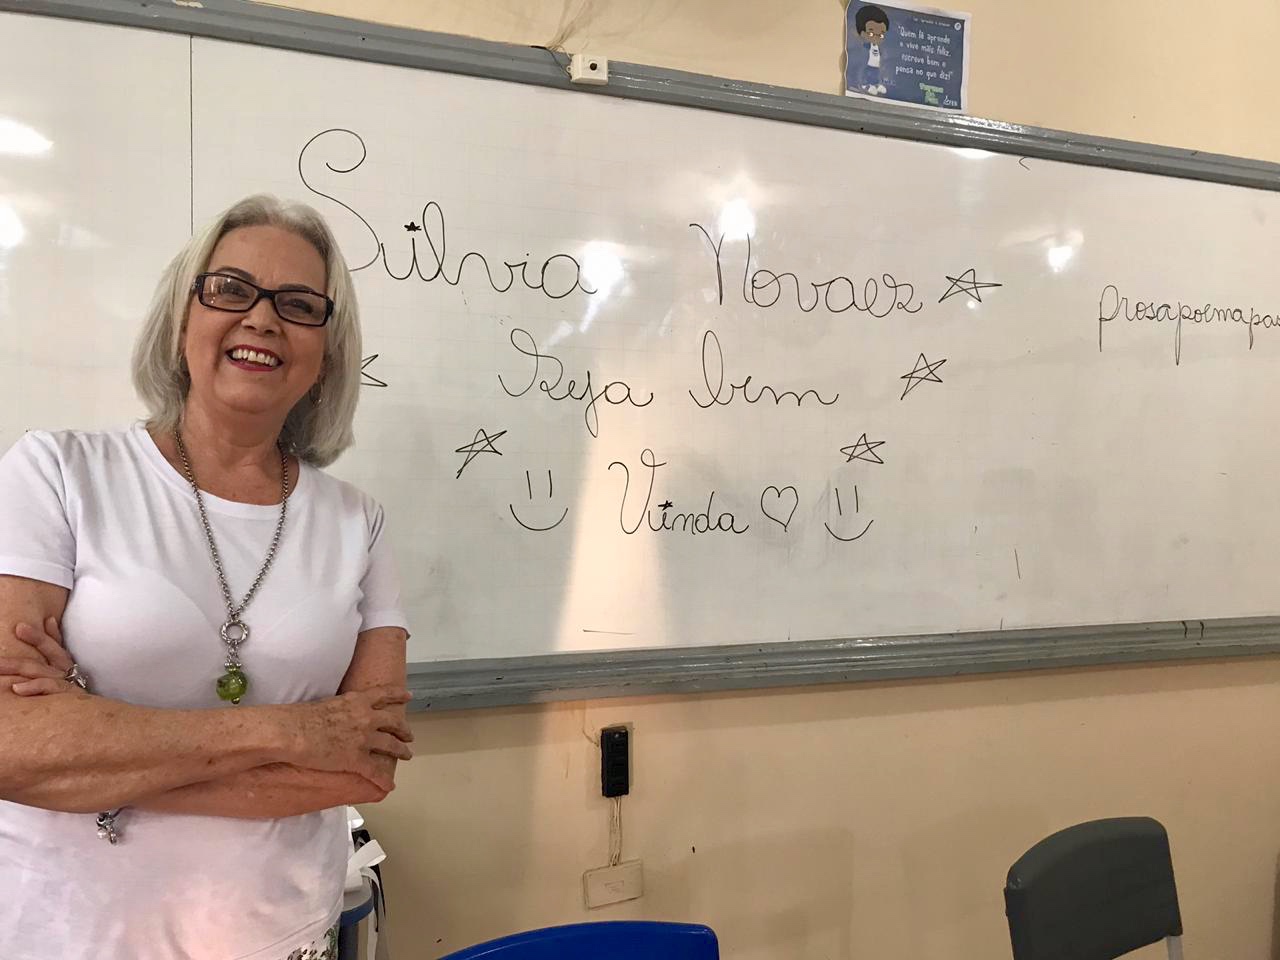 "Quem lê aprende
e vive mais feliz,
escreve bem e
pensa no que diz!"
Silvia Novaes
Seja bem
Vinda
prosapoemapas